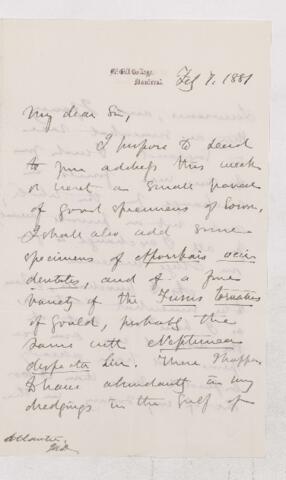 McGill College,
Montreal.
Feb 7. 1881
My dear Sir,
I propose to send
to your address this week
or next a small parcel
of good specimens of Eozoon.
I shall also add some
specimens of Aporrhais occi
dentalis, and of a fine
variety of the Fusus tornatus
of Gould, probably the
same with Neptunea
despecta Lin. These
I have abundantly in my
dredgings in the Gulf of